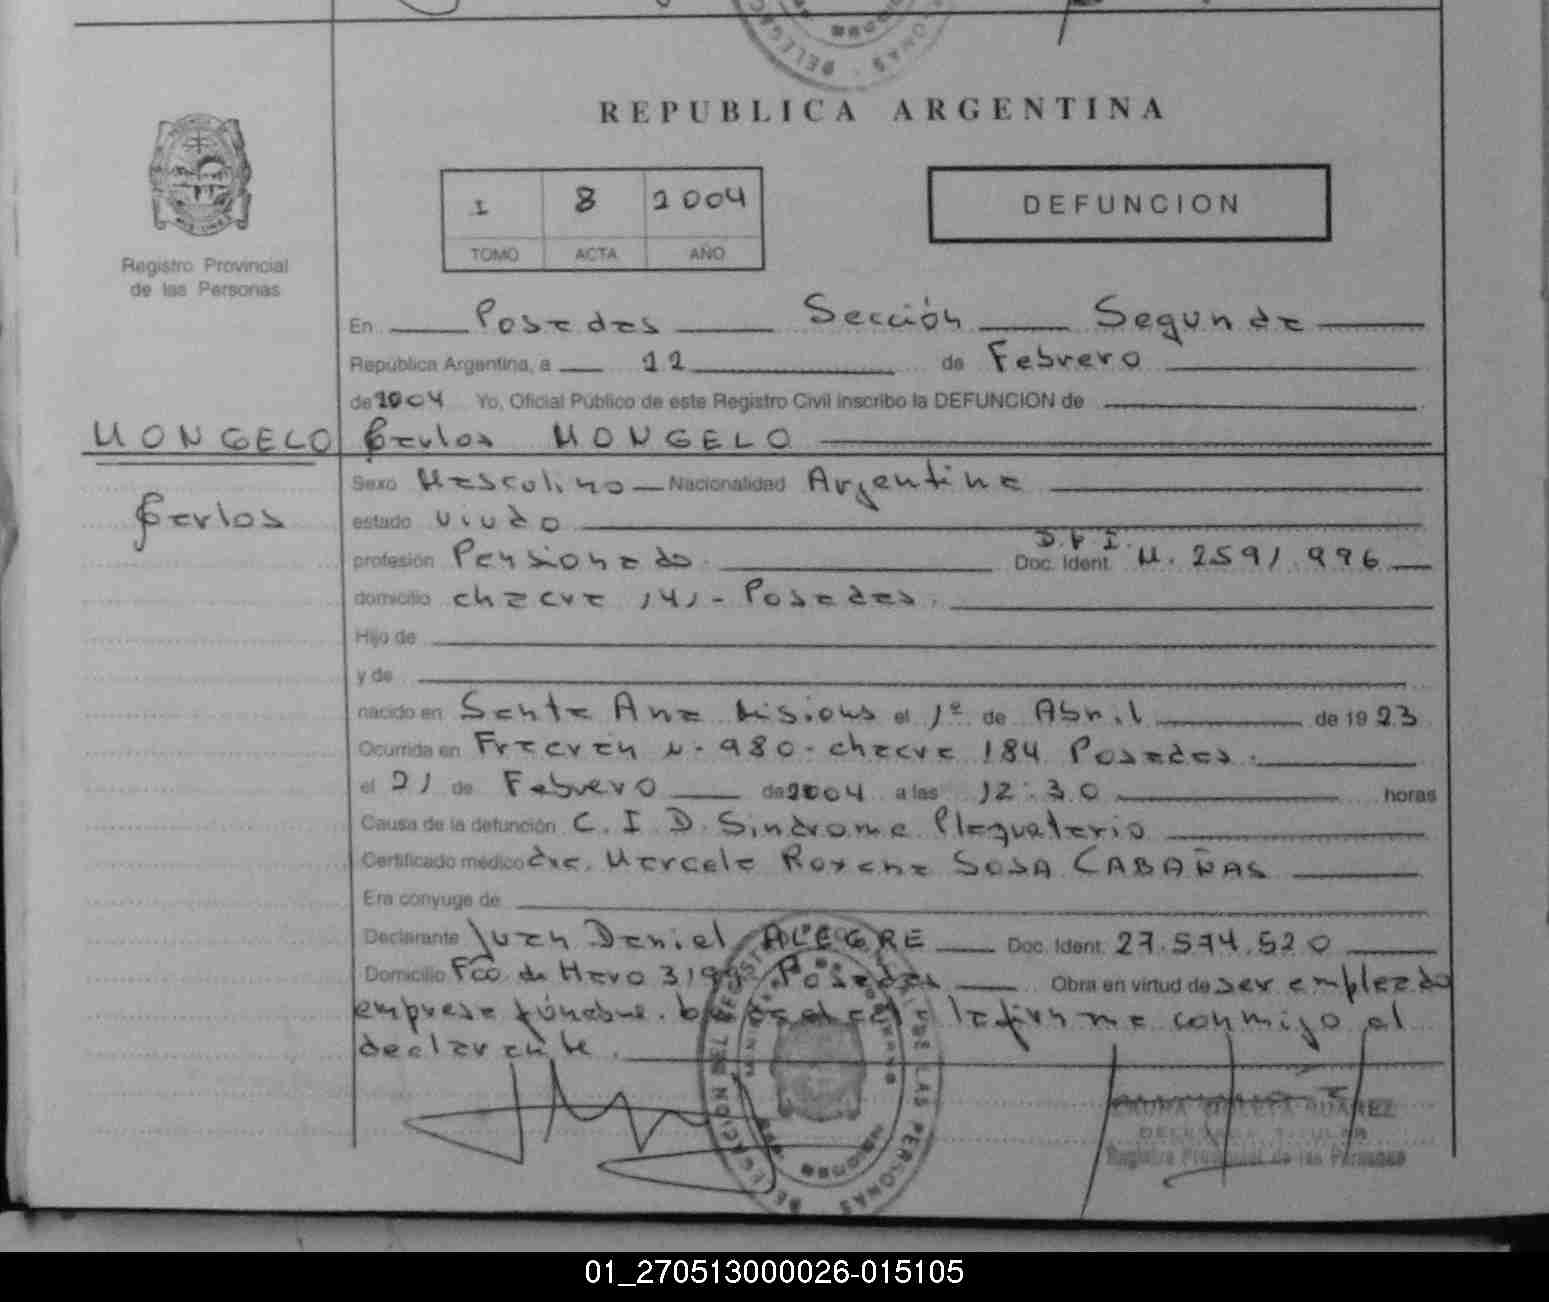 REPUBLICA ARGENTINA
I 8 2004
TOMO ACTA AÑO
DEFUNCION
Registro Provincial
de las Personas
En Posadas Sección Segunda
República Argentina, a 22 de Febrero
de 2004 Yo, Oficial Público de este Registro Civil inscribo la DEFUNCION de
MONGELO Carlos MONGELO
Carlos
Sexo Masculino Nacionalidad Argentina
estado viudo
profesión Pensionado Doc. Ident. D.N.I. M. 2591.996
domicilio chacra 141 - Posadas.
Hijo de
y de
nacido en Santa Ana Misiones el 1º de Abril de 1923
Ocurrida en N. 980 - chacra 184 Posadas.
el 21 de Febrero de 2004 a las 12:30 horas
Causa de la defunción C.I.D. Sindrome
Certificado médico dra. Marcela Roxana SOSA CABAÑAS
Era conyuge de
Declarante Juan Daniel ALEGRE Doc. Ident. 27.574.520
Domicilio Fco. de Haro Posadas Obra en virtud de ser empleado
empresa fúnebre. la firma conmigo el
declarante.
DELEGADA TITULAR
Registro Provincial de las Personas
01_270513000026-015105